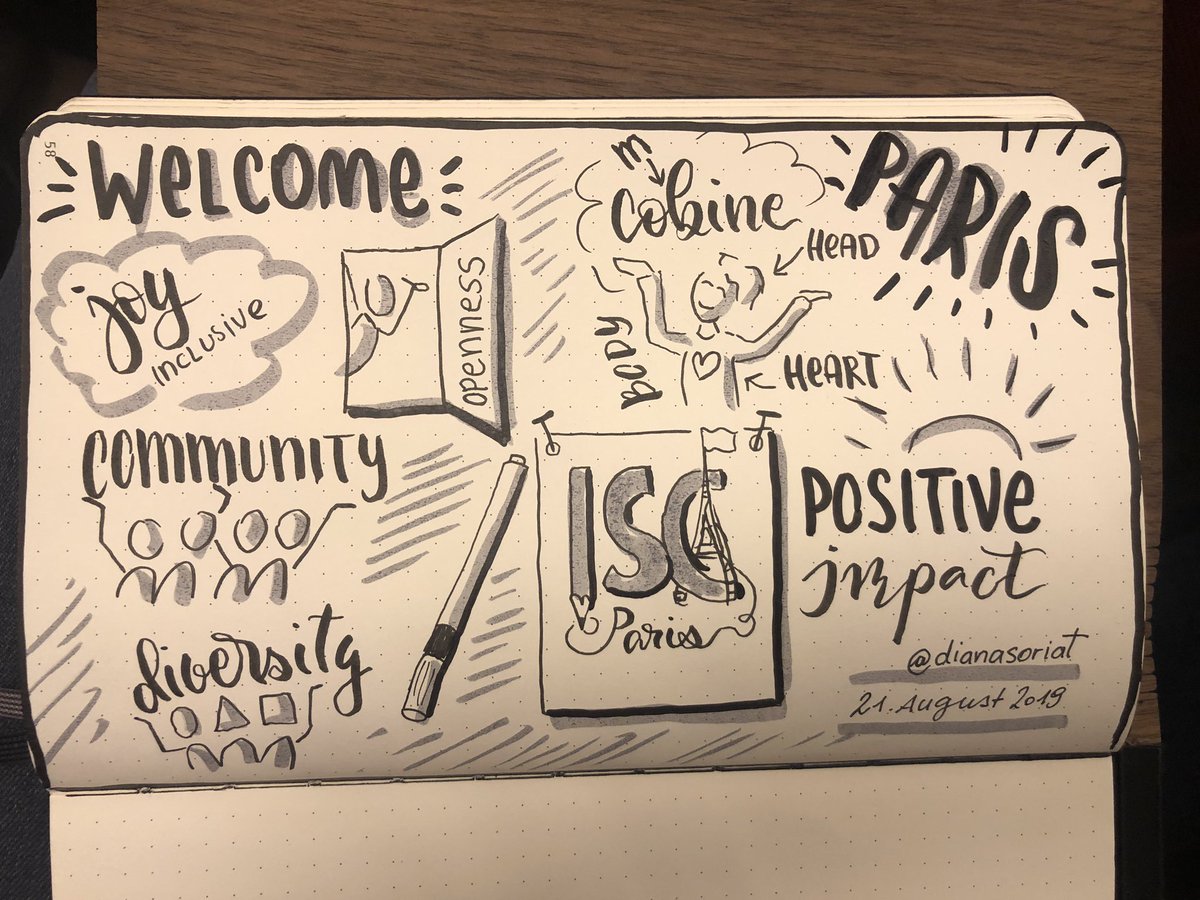 58
WELCOME
joy
INCLUSIVE
OPENNESS
m
cobine
PARIS
HEAD
BODY
HEART
COMMUNITY
ISC
Paris
POSITIVE
impact
diversity
@dianasoriat
21. August 2019